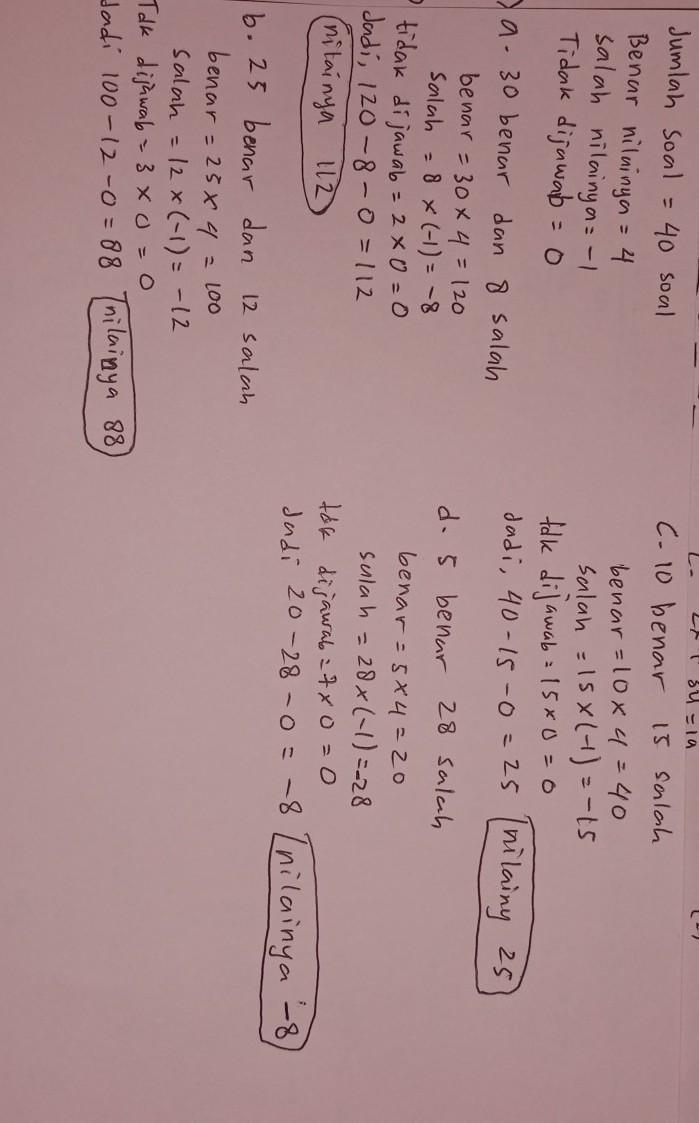 Jumlah soal = 40 soal
Benar nilainya = 4
salah nilainya = -1
Tidak dijawab = 0
a. 30 benar dan 8 salah
benar = 30 x 4 = 120
salah = 8 x (-1) = -8
tidak dijawab = 2 x 0 = 0
Jadi, 120 - 8 - 0 = 112
nilainya 112
b. 25 benar dan 12 salah
benar = 25 x 4 = 100
salah = 12 x (-1) = -12
Tdk dijawab = 3 x 0 = 0
Jadi 100 - 12 - 0 = 88 nilainya 88
C- 10 benar 15 salah
benar = 10 x 4 = 40
salah = 15 x (-1) = -15
tdk dijawab = 15 x 0 = 0
Jadi, 40 - 15 - 0 = 25 nilainy 25
d. 5 benar 28 salah
benar = 5 x 4 = 20
salah = 28 x (-1) = -28
tdk dijawab = 7 x 0 = 0
Jadi 20 - 28 - 0 = -8 nilainya -8